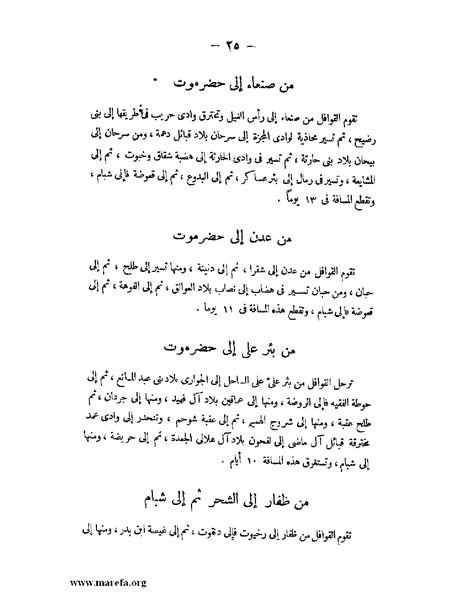 — ٢٥ —
من صنعاء إلى حضرموت
تقوم القوافل من صنعاء إلى رأس الفيل وتخترق وادى حريب فى طريقها إلى بنى
رضيح ، ثم تسير محاذية لوادى المجزة إلى سرحان بلاد قبائل دهمة ، ومن سرحان إلى
بيحان بلاد بنى حارثة ، ثم تسير فى وادى الحارثة إلى هضبة شقاق وخبوت ، ثم إلى
المشايمة ، وتسير فى رمال إلى بئر عساكر ، ثم إلى البدوع ، ثم إلى قعوضة فإلى شبام ،
وتقطع المسافة فى ١٣ يوماً .
من عدن إلى حضرموت
تقوم القوافل من عدن إلى شقرا ، ثم إلى دثينة ، ومنها تسير إلى طلح ، ثم إلى
حبان ، ومن حبان تسير فى هضاب إلى نصاب بلاد العوالق ، ثم إلى القوهة ، ثم إلى
قعوضة فإلى شبام ، وتقطع هذه المسافة فى ١١ يوما .
من بئر على إلى حضرموت
ترحل القوافل من بئر علىّ على الساحل إلى الجوارى بلاد بنى عبد المانع ، ثم إلى
حوطة الفقيه فإلى الروضة ، ومنها إلى عماقين بلاد آل فهيد ، ومنها إلى جردان ، ثم
طلح عقبة ، ومنها إلى شروج الهميم ، ثم إلى عقبة شوحم ، وتنحدر إلى وادى عمد
مخترقة قبائل آل ماضى إلى لفحون بلاد آل هلالى الجعدة ، ثم إلى حريضة ، ومنها
إلى شبام ، وتستغرق هذه المسافة ١٠ أيام .
من ظفار إلى الشحر ثم إلى شبام
تقوم القوافل من ظفار إلى رخيوت فإلى دهموت ، ثم إلى غيسة ابن بدر ، ومنها إلى
www.marefa.org